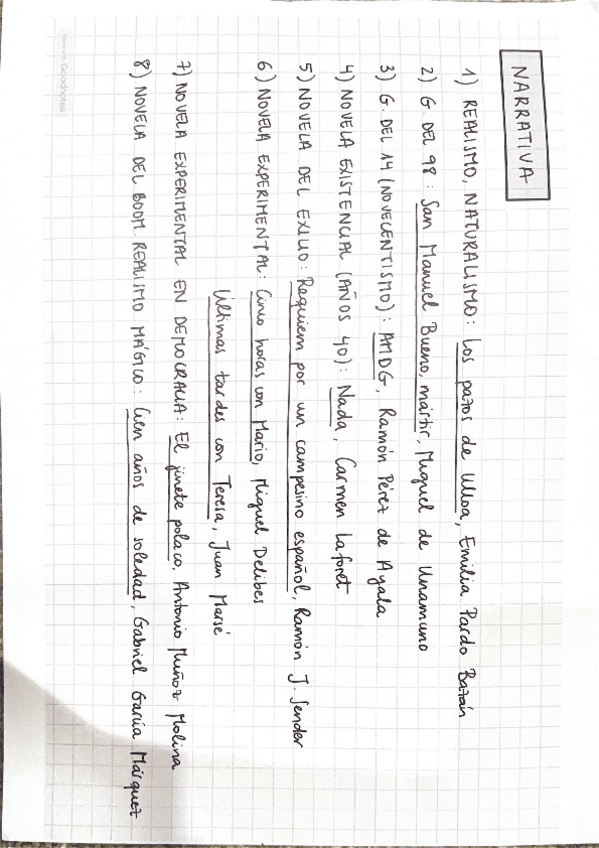 NARRATIVA
1) REALISMO, NATURALISMO: Los pazos de Ulloa, Emilia Pardo Bazán
2) G. DEL 98: San Manuel Bueno, mártir, Miguel de Unamuno
3) G. DEL 14 (NOVECENTISMO): AMDG, Ramón Pérez de Ayala
4) NOVELA EXISTENCIAL (AÑOS 40): Nada, Carmen Laforet
5) NOVELA DEL EXILIO: Requiem por un campesino español, Ramón J. Sender
6) NOVELA EXPERIMENTAL: Cinco horas con Mario, Miguel Delibes
Últimas tardes con Teresa, Juan Marsé
7) NOVELA EXPERIMENTAL EN DEMOCRACIA: El jinete polaco, Antonio Muñoz Molina
8) NOVELA DEL BOOM. REALISMO MÁGICO: Cien años de soledad, Gabriel García Márquez
Goodnotes